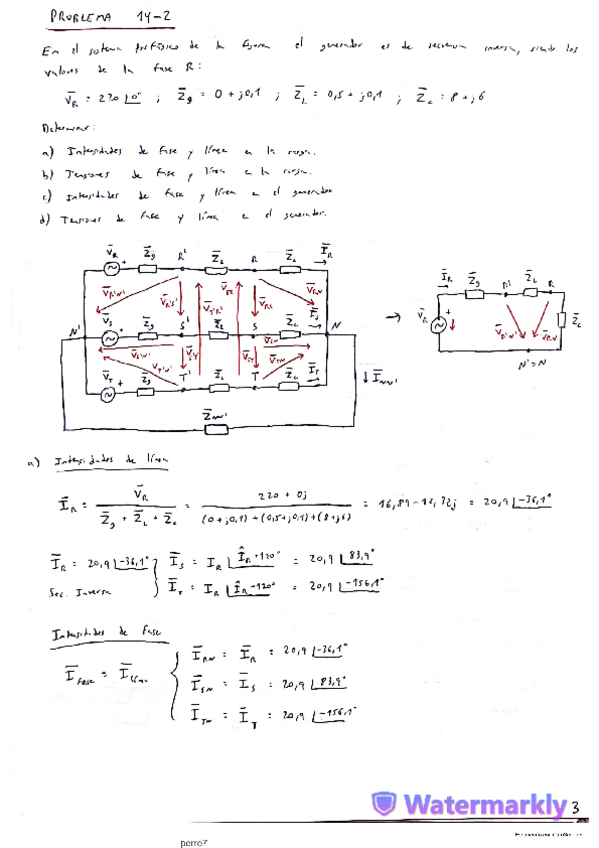 PROBLEMA 14-2
En el sistema trifásico de la figura el generador es de secuencia inversa, siendo los
valores de la fase R:
V̄R = 220 |0° ; Z̄g = 0 + j0,1 ; Z̄L = 0,5 + j0,1 ; Z̄c = 8 + j6
Determinar:
a) Intensidades de fase y línea en la carga.
b) Tensiones de fase y línea en la carga.
c) Intensidades de fase y línea en el generador
d) Tensiones de fase y línea en el generador.
V̄R + Z̄g R' Z̄L R Z̄c ĪR
V̄R'N' V̄R'S' V̄T'R' V̄TR V̄RS V̄RN
N' V̄S + Z̄g S' Z̄L S Z̄c ĪS N
V̄S'N' V̄S'T' V̄ST V̄SN
V̄T'N' V̄TN
V̄T + Z̄g T' Z̄L T Z̄c ĪT
Z̄NN' ↓ ĪNN'
→ ĪR Z̄g R' Z̄L R
V̄R + V̄R'N' V̄RN Z̄c
N'=N
a) Intensidades de línea
ĪR = V̄R / (Z̄g + Z̄L + Z̄c) = (220 + 0j) / ((0+j0,1)+(0,5+j0,1)+(8+j6)) = 16,89-12,32j = 20,9 |-36,1°
ĪR = 20,9 |-36,1° ĪS = IR |ÎR+120° = 20,9 |83,9°
Sec. Inversa ĪT = IR |ÎR-120° = 20,9 |-156,1°
Intensidades de fase
Īfase = Īlínea
ĪRN = ĪR = 20,9 |-36,1°
ĪSN = ĪS = 20,9 |83,9°
ĪTN = ĪT = 20,9 |-156,1°
Watermarkly 3
perre7